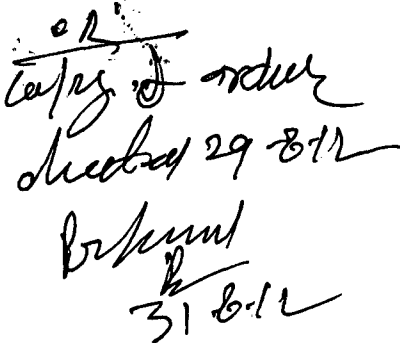 OR
Copy of order
dated 29-8-12
31-8-12